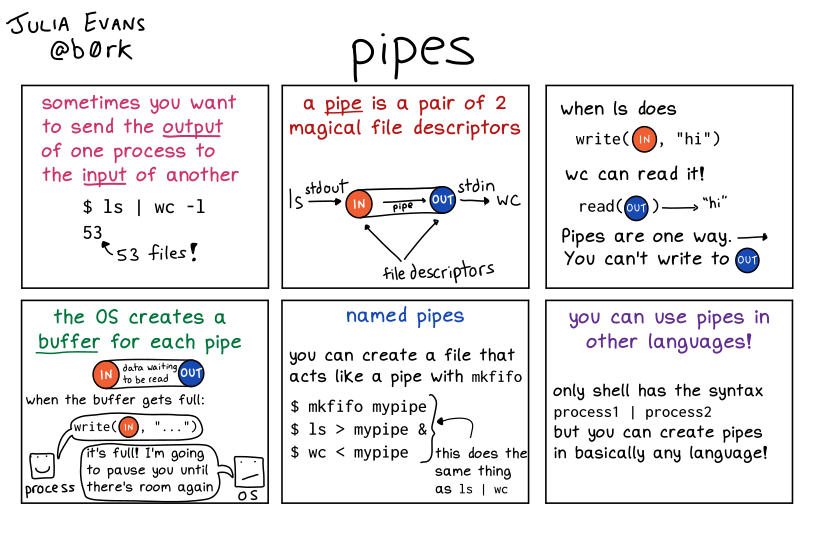 JULIA EVANS
@b0rk
pipes
sometimes you want
to send the output
of one process to
the input of another
$ ls | wc -l
53
53 files!
a pipe is a pair of 2
magical file descriptors
ls stdout IN pipe OUT stdin wc
file descriptors
when ls does
write(IN, "hi")
wc can read it!
read(OUT) "hi"
Pipes are one way.
You can't write to OUT
the OS creates a
buffer for each pipe
IN data waiting OUT
to be read
when the buffer gets full:
write(IN, "...")
process
it's full! I'm going
to pause you until
there's room again
OS
named pipes
you can create a file that
acts like a pipe with mkfifo
$ mkfifo mypipe
$ ls > mypipe &
$ wc < mypipe
this does the
same thing
as ls | wc
you can use pipes in
other languages!
only shell has the syntax
process1 | process2
but you can create pipes
in basically any language!